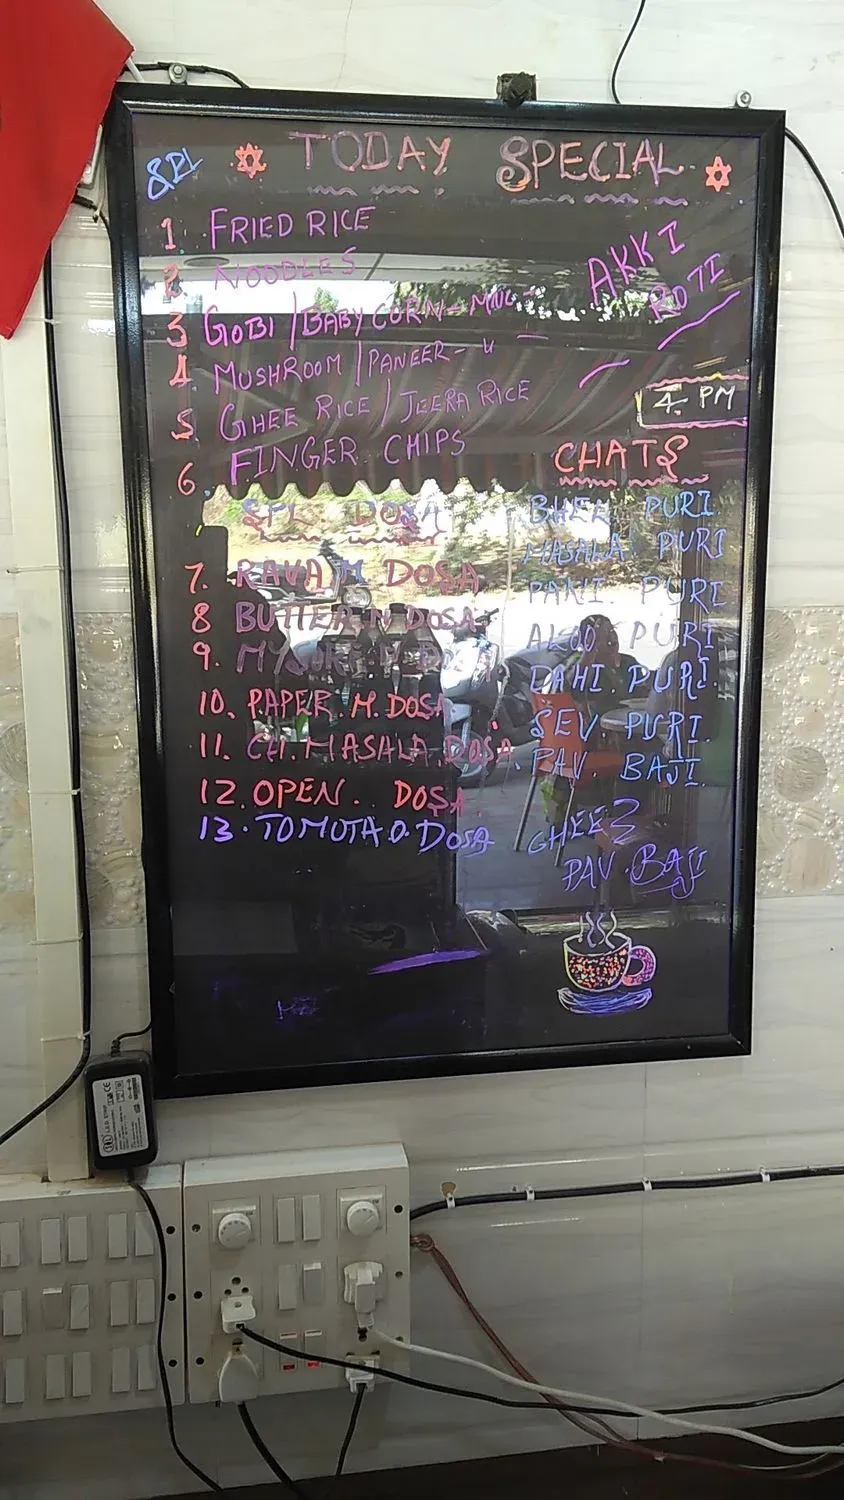 TODAY SPECIAL
1 FRIED RICE
2 NOODLES
3 GOBI / BABY CORN -
4. MUSHROOM / PANEER - 〃
5. GHEE RICE / JEERA RICE
6. FINGER CHIPS
SPL. DOSA
7. RAVA M DOSA
8 BUTTER M DOSA
9. MYSORE M DOSA
10. PAPER. M. DOSA
11. CH. MASALA. DOSA.
12. OPEN.. DOSA
13. TOMUTAO. DOSA
AKKI
ROTI
4. PM
CHATS
BHEL PURI.
MASALA PURI
PANI PURI
ALOO PURI
DAHI. PURI.
SEV PURI.
PAV. BAJI.
GHEE
PAV. BAJI